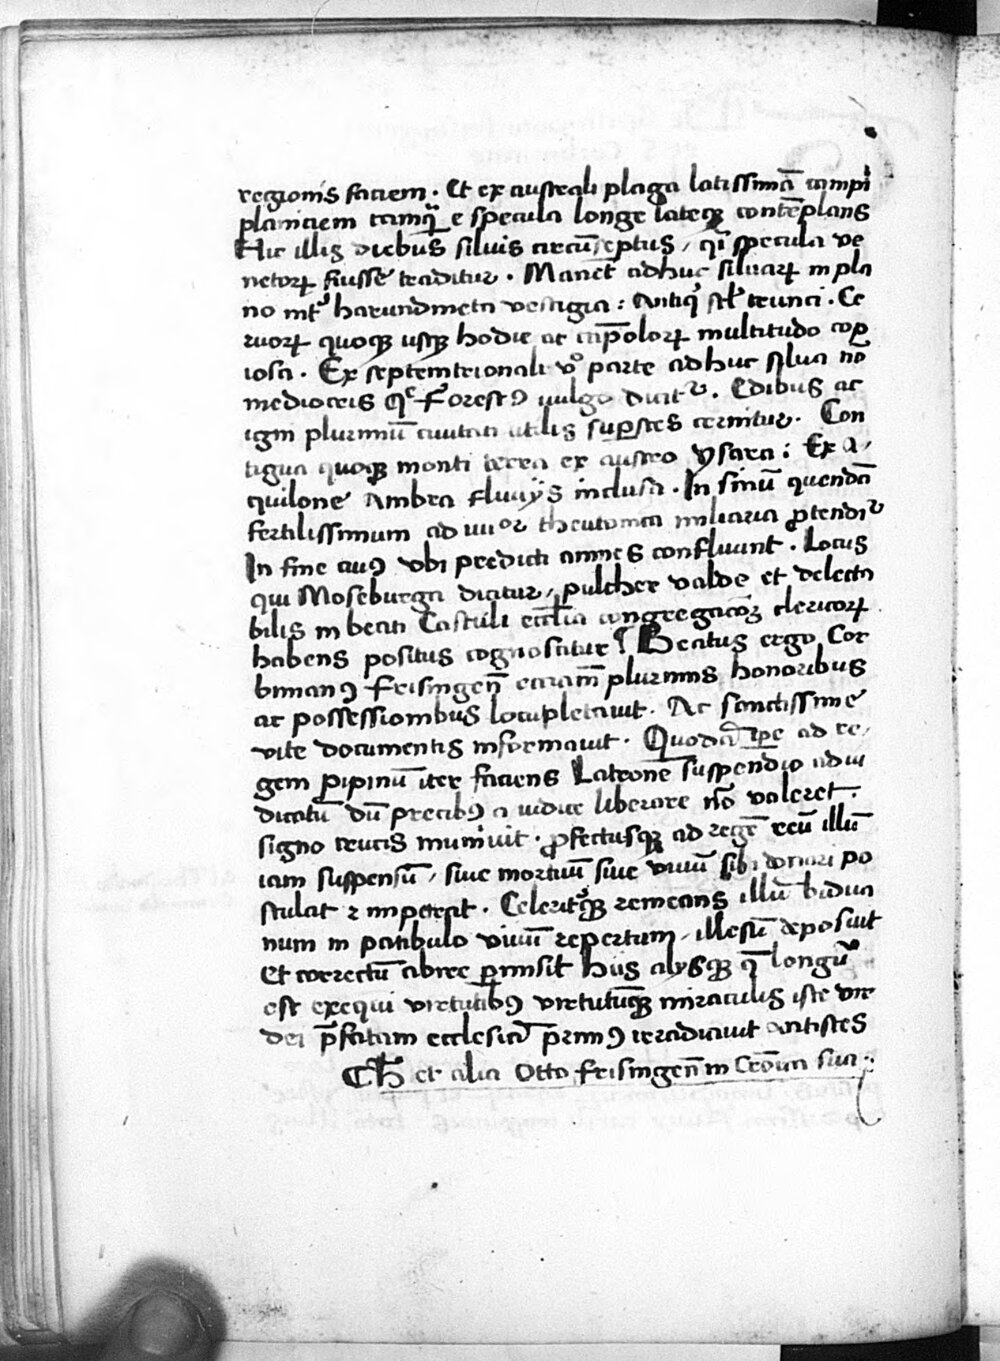 regionis faciem. Et ex australi plaga latissimā campi
planiciem tamq̄ e specula longe lateqꝫ contēplans
Hic illis diebus siluis circūseptus / qi specula ve
netoꝝ fuisse traditur. Manēt adhuc siluaꝝ in pla
no int᷑ harundineta vestigia: antiq᷑ trunci. Ce
ruoꝝ quoqꝫ usqꝫ hodie ac cap̄olorꝝ multitudo cop
iosa. Ex septemtrionali v͛o parte adhuc silua nō
mediocris q̄ Forestꝰ uulgo dicit᷑. Edibus ac
igni plurimū ciuitati utilis suꝑstes cernitur. Con
tigua quoqꝫ monti terra ex austro Ysara: Ex a/
quilone Ambra fluuijs inclusa. In sinū quendā
fertilissimum ad iiiior theutonica miliaria ꝓtendit᷑
In fine cuiꝰ vbi predicti amnes confluunt. Locus
qui Moseburga dicitur, pulcher valde et delecta
bilis in beati Castuli ecclīa congregacōꝫ clericoꝝ
habens positus cognoscitur. Beatus ergo Cor
binianꝰ Frisingeñ eccam̄ plurimis honoribus
ac possessionibus locupletauit. Ac sanctissime
vite documentis informauit. Quodā tpe ad re/
gem pipinū iter faciens Latronē suspendio adiu
dicatū dū precibꝰ a iudice liberare nō valeret.
signo crucis muniuit. ꝓfectusqꝫ ad regē reū illū
iam suspensū / siue mortuū siue viuū sibi donari po
stulat ⁊ impetrat. Celerit᷑qꝫ remeans illū bidua
num in patibulo viuū repertum / illesū deposuit
Et correctū abire ꝑmisit his alijsqꝫ q̄ longū
est exequi virtutibꝰ virtutūqꝫ miraculis iste vir
dei p̄fatam ecclesiā p̄mꝰ irradiauit antistes
H̄ et alia Otto Frisingeñ in Crōica sua